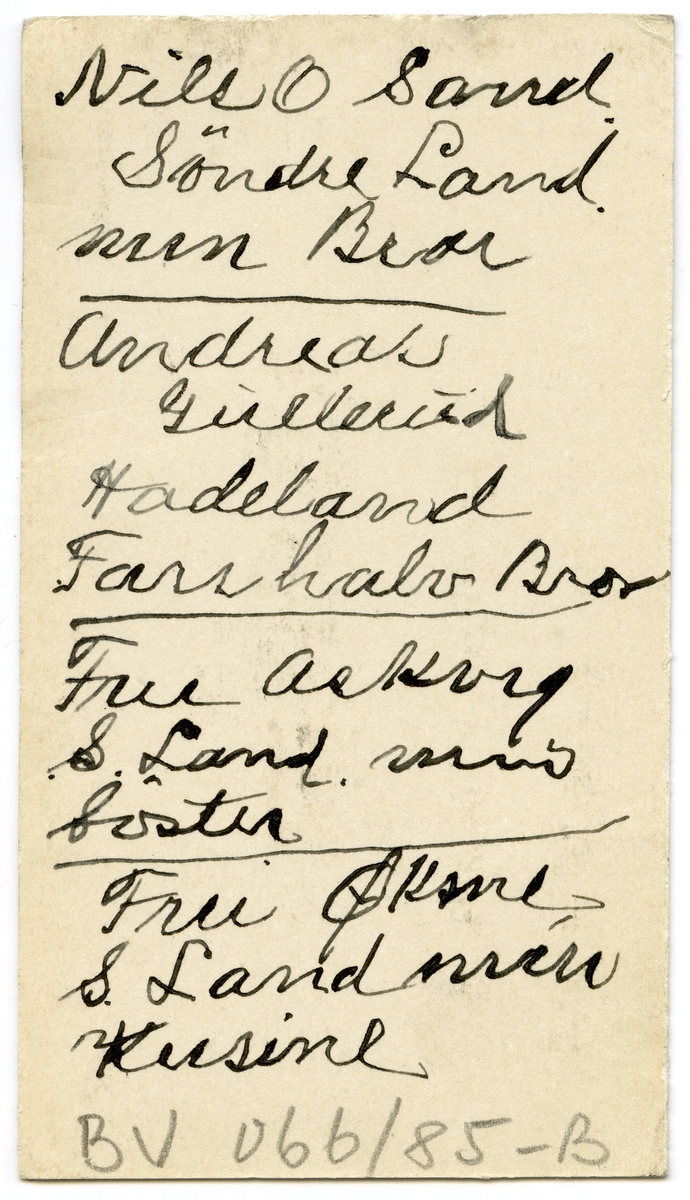 Nils O Sand.
Söndre Land.
min Bror
Andreas
Gullerud
Hadeland
Fars halv Bror
Fru Askvig
S. Land. min
söster
Fru Øksne
S. Land min
Kusine
BV 066/85-B